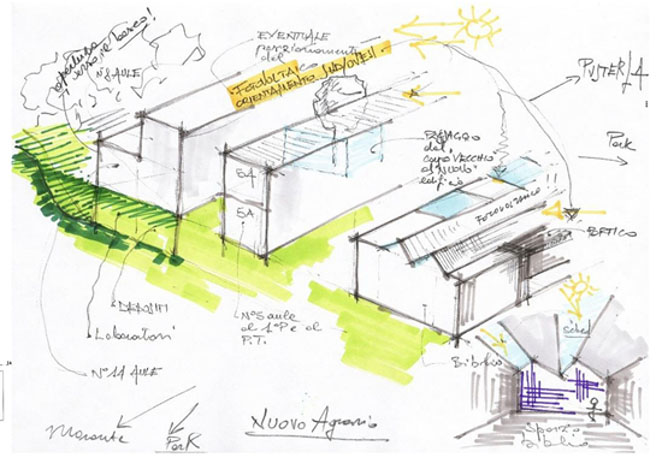 apertura
verso il bosco!
N°8 AULE
EVENTUALE
posizionamento
del
FOTOVOLTAI
ORIENTAMENTO SUD/OVEST.
PUSTER/A
Park
PASSAGGIO
dal
corpo VECCHIO
al NUOVO
edificio
FOTOVOLTAICO
PORTICO
5A
5A
DEPOSITI
Laboratori
N°11 AULE
N°5 aule
al 1°P e al
P.T.
Biblio
sched
Spazio
biblio
Marconte
Park
Nuovo Agrario